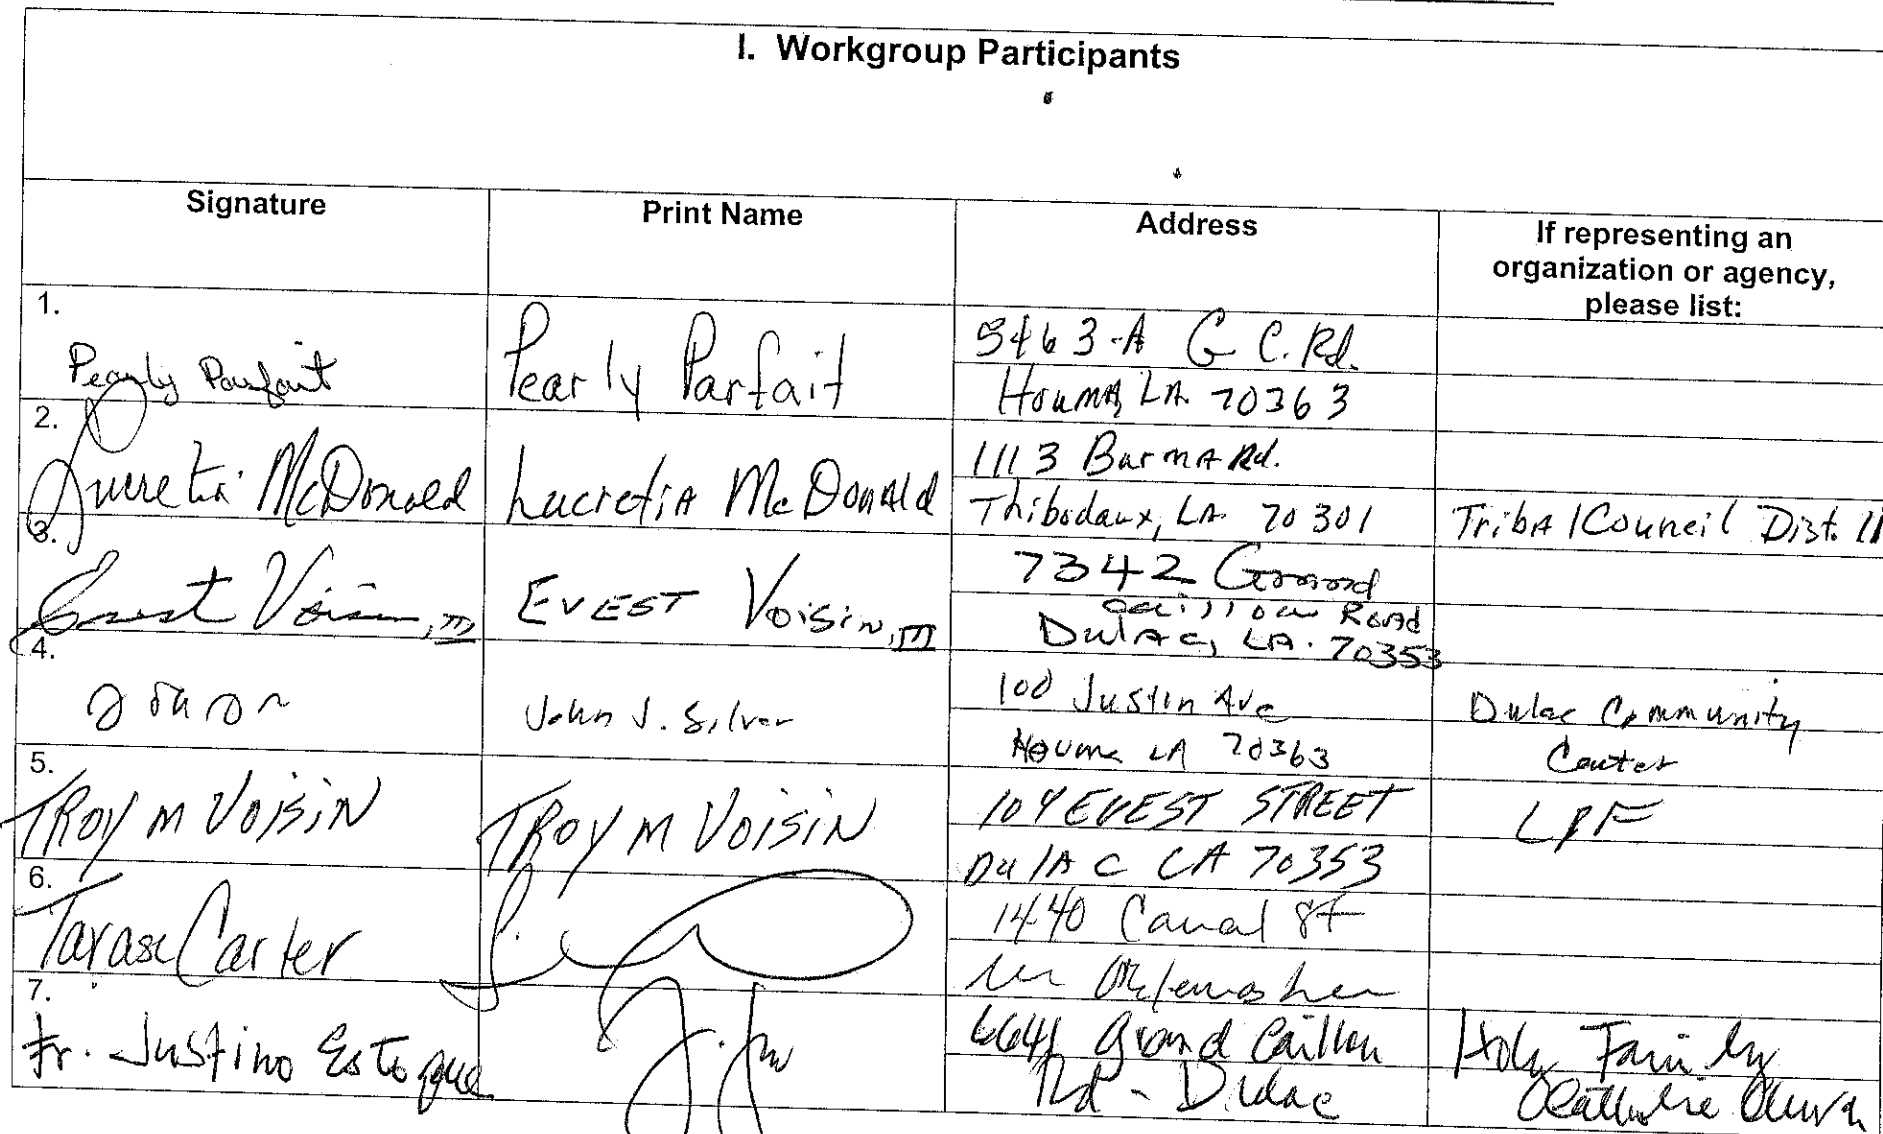 I. Workgroup Participants
Signature
Print Name
Address
If representing an
organization or agency,
please list:
1.
Pearly Parfait
Pearly Parfait
5463-A G C. Rd.
Houma, LA 70363
2.
Lucretia McDonald
Lucretia McDonald
1113 Burma Rd.
Thibodaux, LA 70301
Tribal Council Dist. 11
3.
Evest Voisin, III
EVEST Voisin, III
7342 Grand
Caillou Road
Dulac, LA. 70353
4.
John J. Silver
100 Justin Ave
Houma LA 70363
Dulac Community
Center
5.
TROY M VOISIN
TROY M VOISIN
104 EVEST STREET
DulAc LA 70353
6.
Carter
1440 Canal St
7.
Fr. Justino Estoque
6641 Grand Caillou
Rd - Dulac
Holy Family
Catholic Church